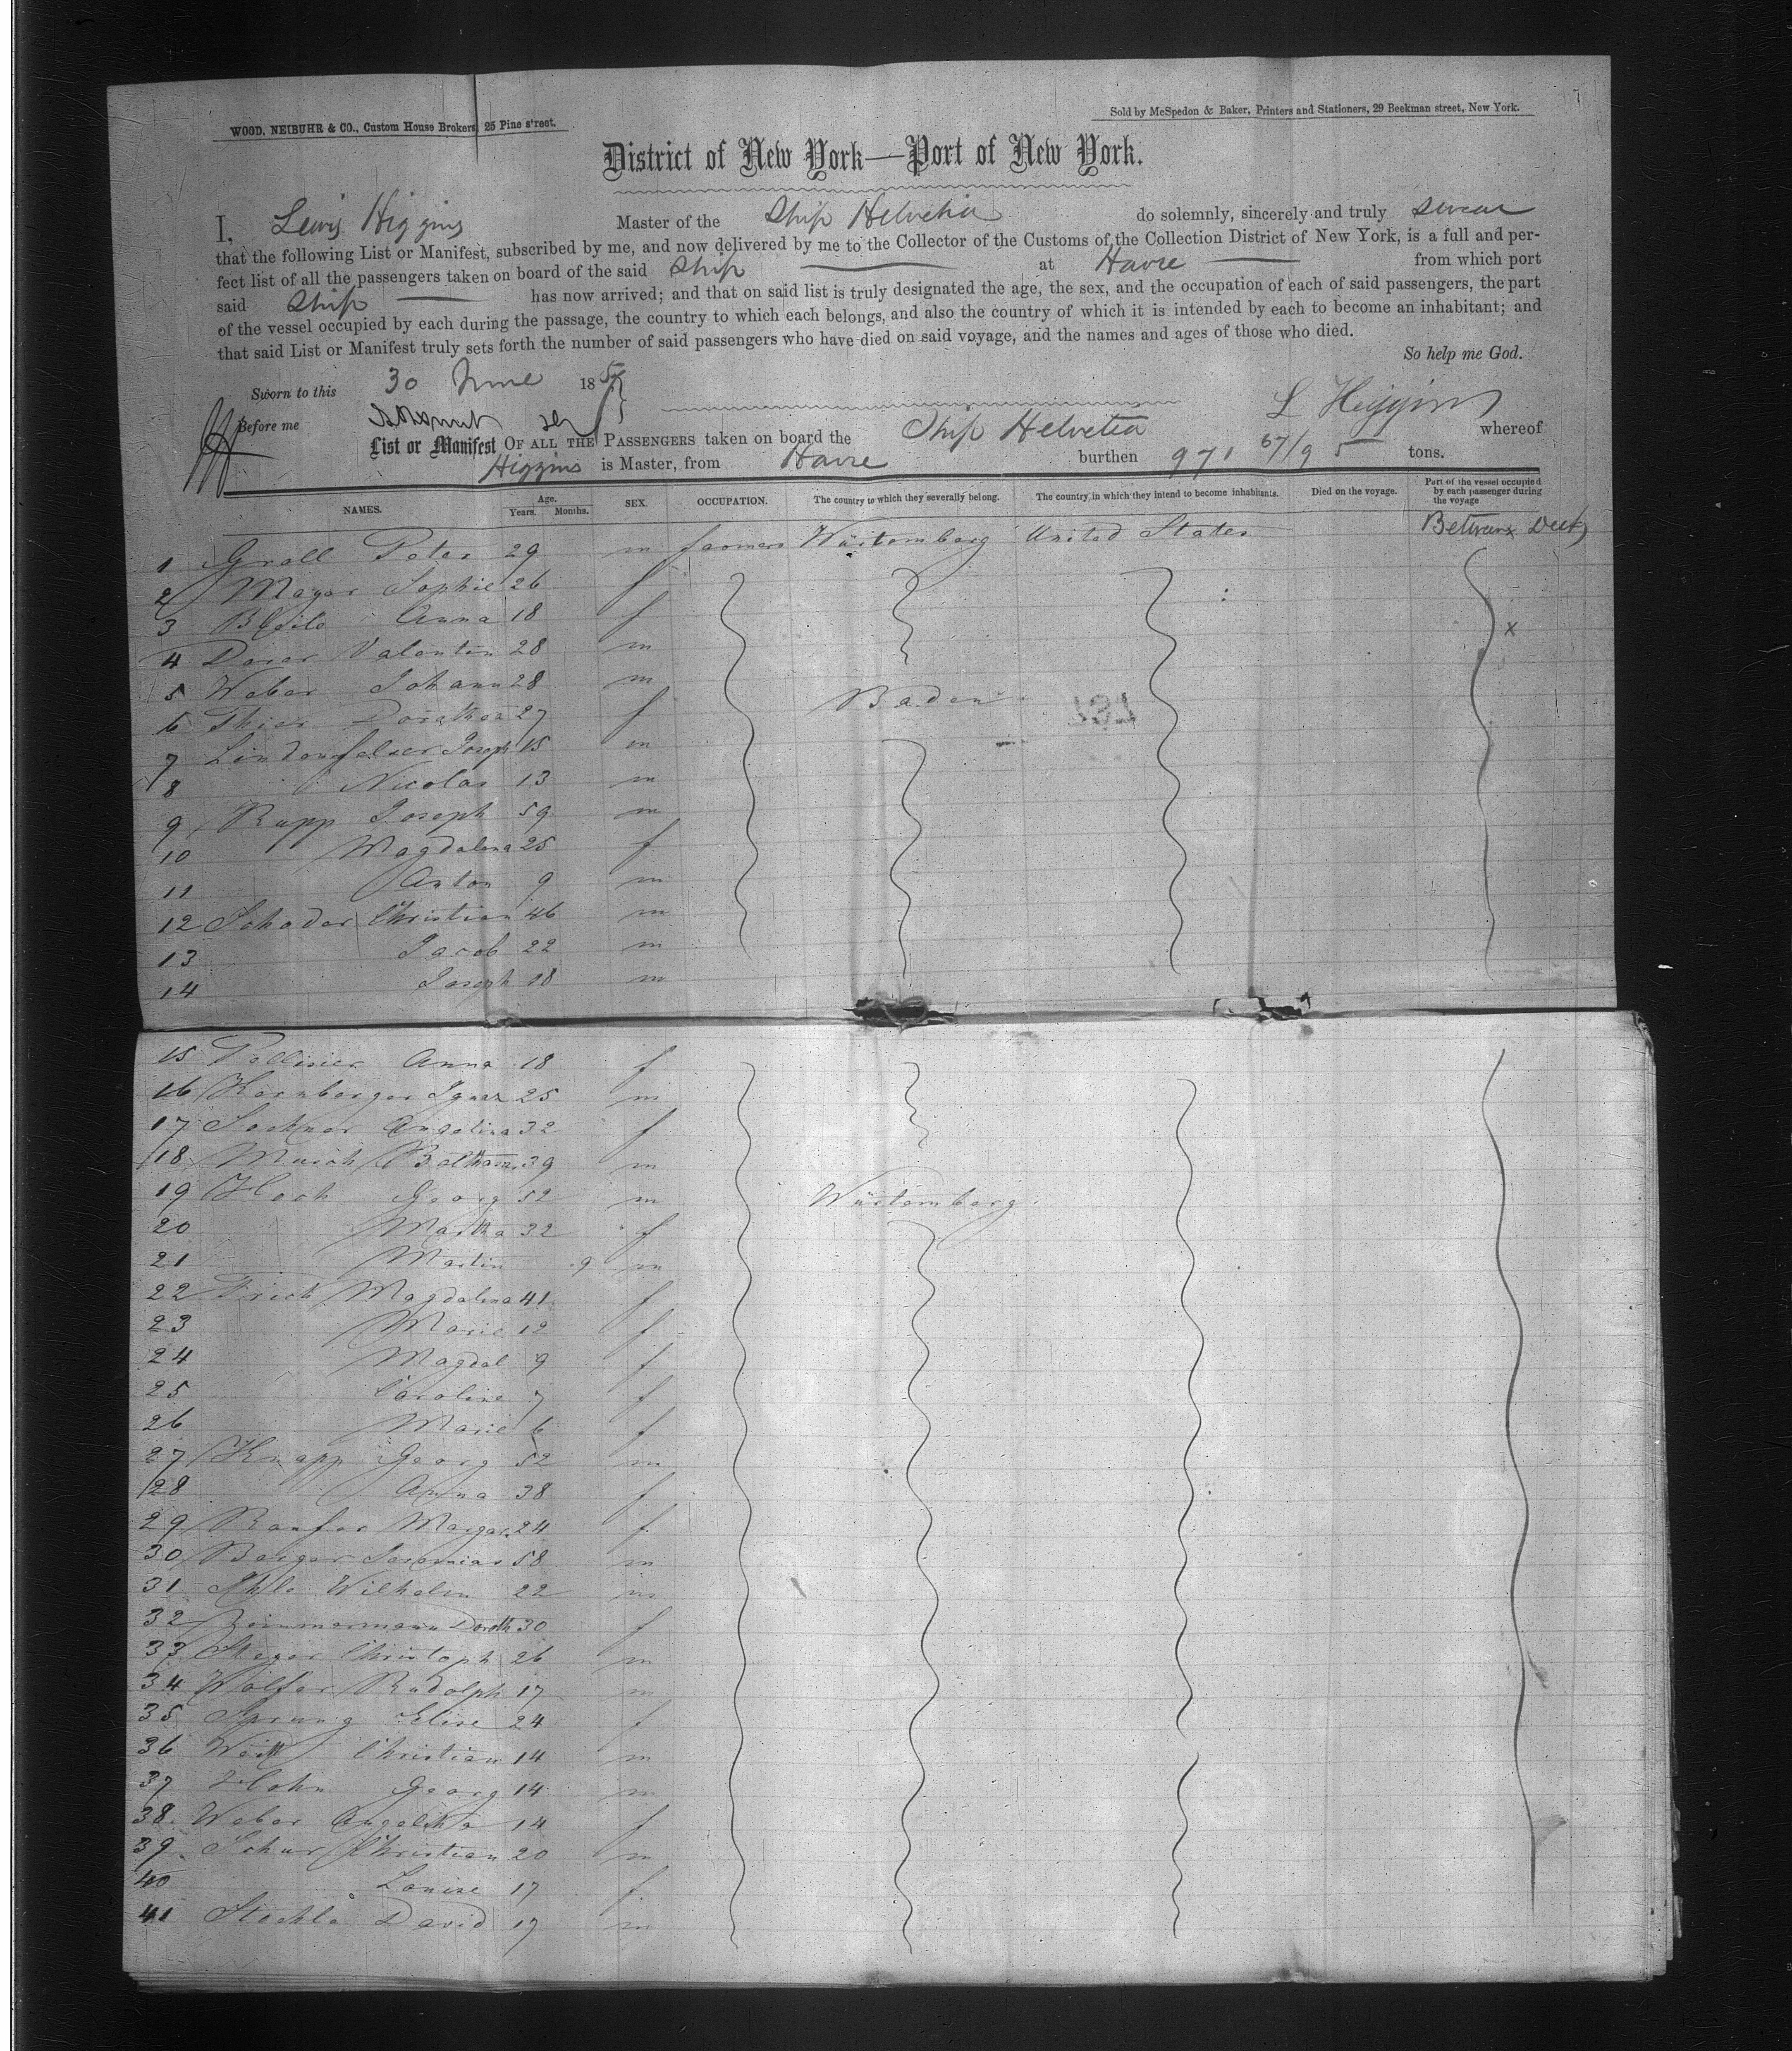 WOOD, NEIBUHR & CO., Custom House Brokers, 25 Pine street.
Sold by McSpedon & Baker, Printers and Stationers, 29 Beekman street, New York.
District of New York—Port of New York.
I, Lewis Higgins Master of the Ship Helvetia do solemnly, sincerely and truly swear
that the following List or Manifest, subscribed by me, and now delivered by me to the Collector of the Customs of the Collection District of New York, is a full and per-
fect list of all the passengers taken on board of the said Ship at Havre from which port
said Ship has now arrived; and that on said list is truly designated the age, the sex, and the occupation of each of said passengers, the part
of the vessel occupied by each during the passage, the country to which each belongs, and also the country of which it is intended by each to become an inhabitant; and
that said List or Manifest truly sets forth the number of said passengers who have died on said voyage, and the names and ages of those who died.
So help me God.
Sworn to this 30 June 185
Before me
L Higgins
List or Manifest OF ALL THE PASSENGERS taken on board the Ship Helvetia whereof
Higgins is Master, from Havre burthen 971 67/95 tons.
NAMES. Age. Years. Months. SEX. OCCUPATION. The country to which they severally belong. The country in which they intend to become inhabitants. Died on the voyage. Part of the vessel occupied by each passenger during the voyage
1 Groll Peter 29 m farmers Würtemberg United States Between Deck
2 Mayer Sophie 26 f
3 Anna 18 f x
4 Valentin 28 m
5 Weber Johann 28 m
6 Thier Dorathea 27 f Baden
7 Lindenfelser Joseph 15 m
8 Nicolas 13 m
9 Rupp Joseph 59 m
10 Magdalena 25 f
11 Anton 9 m
12 Schader Christian 46 m
13 Jacob 22 m
14 Joseph 18 m
15 Pellisier Anna 18 f
16 Kernberger Ignaz 25 m
17 32 f
18 Balthasar 39 m
19 Hoch Georg 52 m Würtemberg
20 Martha 32 f
21 Martin 9 m
22 Frick Magdalena 41 f
23 Marie 12 f
24 Magdal 9 f
25 Caroline 7 f
26 Marie 6 f
27 Knapp Georg 52 m
28 Anna 38 f
29 Margar. 24 f
30 Berger Jeremias 58 m
31 Wilhelm 22 m
32 Zimmermann Doroth 30 f
33 Christoph 26 m
34 Wolfer Rudolph 17 m
35 Sprung Elise 24 f
36 Christian 14 m
37 Hohn Georg 14 m
38 Weber Angelika 14 f
39 Schur Christian 20 m
40 Louise 17 f
41 Stockle David 17 m